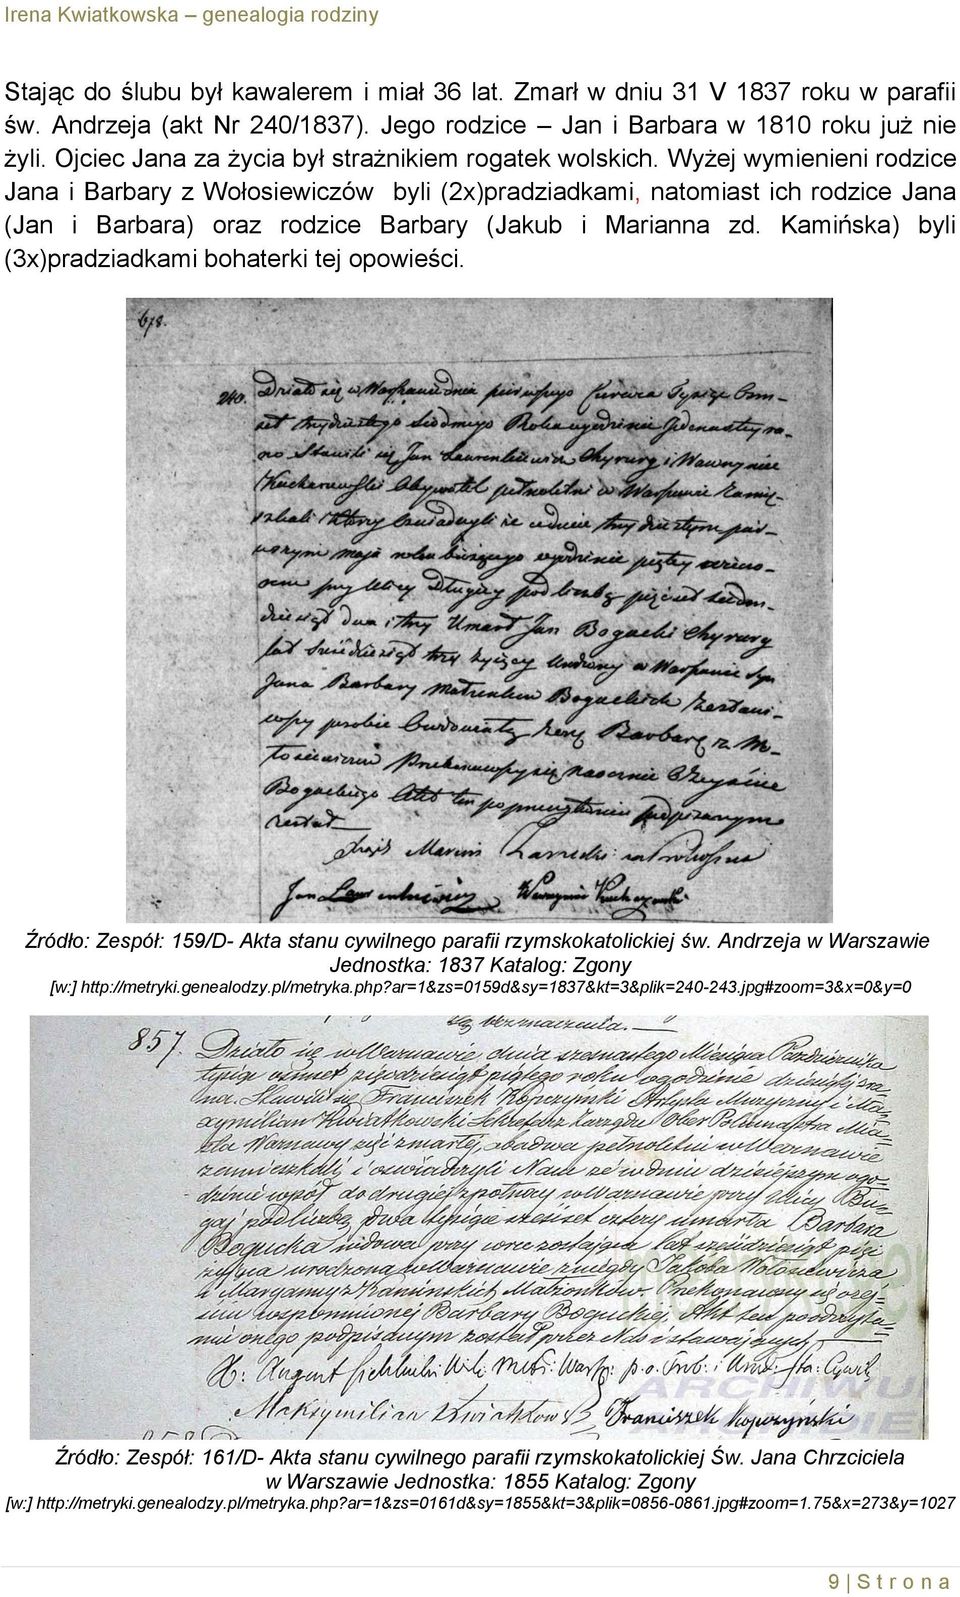 Irena Kwiatkowska – genealogia rodziny
Stając do ślubu był kawalerem i miał 36 lat. Zmarł w dniu 31 V 1837 roku w parafii
św. Andrzeja (akt Nr 240/1837). Jego rodzice – Jan i Barbara w 1810 roku już nie
żyli. Ojciec Jana za życia był strażnikiem rogatek wolskich. Wyżej wymienieni rodzice
Jana i Barbary z Wołosiewiczów byli (2x)pradziadkami, natomiast ich rodzice Jana
(Jan i Barbara) oraz rodzice Barbary (Jakub i Marianna zd. Kamińska) byli
(3x)pradziadkami bohaterki tej opowieści.
678.
240. Działo się w Warszawie dnia pierwszego Czerwca Tysiąc Osm-
set trzydziestego siódmego Roku o godzinie Jedenastey ra-
no Stawili się Jan Laurenkiewicz Chyrurg i Wawrzyniec
Kucharzewski Obywatel pełnoletni w Warszawie Zamie-
szkali i którzy Oświadczyli że w dniu trzydziestym pier-
wszym maja roku bieżącego o godzinie piątey wieczo-
rem przy Ulicy Długiey pod liczbą pięćset siedm-
dziesiąt dwa i trzy Umarł Jan Bogucki Chyrurg
lat sześćdziesiąt trzy żyjący Urodzony w Warszawie Syn
Jana Barbary Małżonków Boguckich Zostawi-
wszy po sobie Owdowiałą żonę Barbarę z
Przekonawszy się naocznie o Zejściu
Boguckiego Akt ten po przeczytaniu podpisanym
został
Xiądz Marcin
Jan Wawrzyniec
Źródło: Zespół: 159/D- Akta stanu cywilnego parafii rzymskokatolickiej św. Andrzeja w Warszawie
Jednostka: 1837 Katalog: Zgony
[w:] http://metryki.genealodzy.pl/metryka.php?ar=1&zs=0159d&sy=1837&kt=3&plik=240-243.jpg#zoom=3&x=0&y=0
857. Działo się w Warszawie, dnia szesnastego Miesiąca Października
tysiąc ośmset pięćdziesiąt piątego roku o godzinie dziesiątej zra-
na. Stawili się Franciszek Kopczyński Artysta Muzyczny i Ma-
xymilian Kwiatkowski Sekretarz Zarządu Ober Policmajstra Mia-
sta Warszawy zięć zmarłej, obadwa pełnoletni w Warszawie
zamieszkali, i oświadczyli Nam że w dniu dzisiejszym o go-
dzinie wpół do drugiej z północy w Warszawie przy Ulicy Bu-
gaj pod liczbą dwa tysiące sześćset cztery umarła Barbara
Bogucka wdowa przy córce zostająca lat sześćdziesiąt pięć
żyjąca urodzona w Warszawie z niegdy Jakóba Wołosiewicza
i Maryanny z Kamińskich Małżonków. Przekonawszy się o zej-
ściu wspomnionej Barbary Boguckiej, Akt ten po odczyta-
niu onego podpisanym został przez Nas i stawających,
X: August
Maksymilian Kwiatkowski Franciszek Kopczyński
ARCHIWU
ARCHIDIE
Źródło: Zespół: 161/D- Akta stanu cywilnego parafii rzymskokatolickiej Św. Jana Chrzciciela
w Warszawie Jednostka: 1855 Katalog: Zgony
[w:] http://metryki.genealodzy.pl/metryka.php?ar=1&zs=0161d&sy=1855&kt=3&plik=0856-0861.jpg#zoom=1.75&x=273&y=1027
9 | Strona